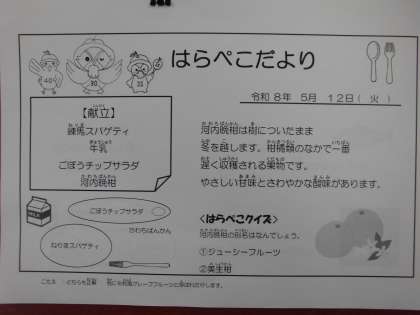 はらぺこだより
40
30
35
令和 8年 5月 12日(火)
【献立】
練馬スパゲティ
牛乳
ごぼうチップサラダ
河内晩柑
河内晩柑は樹についたまま
冬を越します。柑橘類のなかで一番
遅く収穫される果物です。
やさしい甘味とさわやかな酸味があります。
MILK
ごぼうチップサラダ
かわちばんかん
ねりまスパゲティ
<はらぺこクイズ>
河内晩柑の別名はなんでしょう。
①ジューシーフルーツ
②美生柑
こたえ:どちらも正解